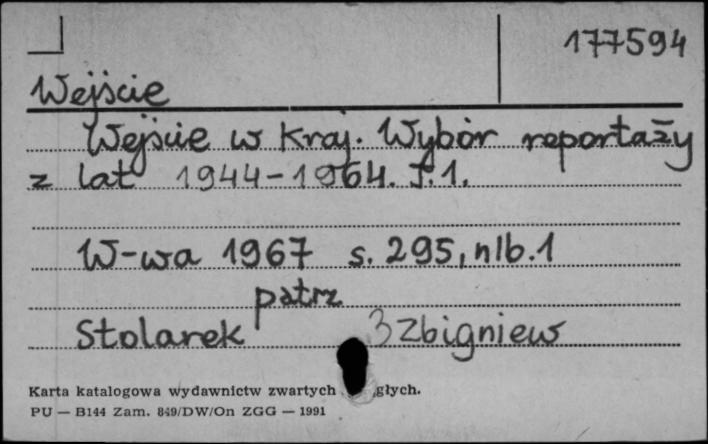 177594
Wejście
Wejście w kraj. Wybór reportaży
z lat 1944-1964. T.1.
W-wa 1967 s. 295, nlb. 1
patrz
Stolarek Zbigniew
Karta katalogowa wydawnictw zwartych głych.
PU — B144 Zam. 849/DW/On ZGG — 1991